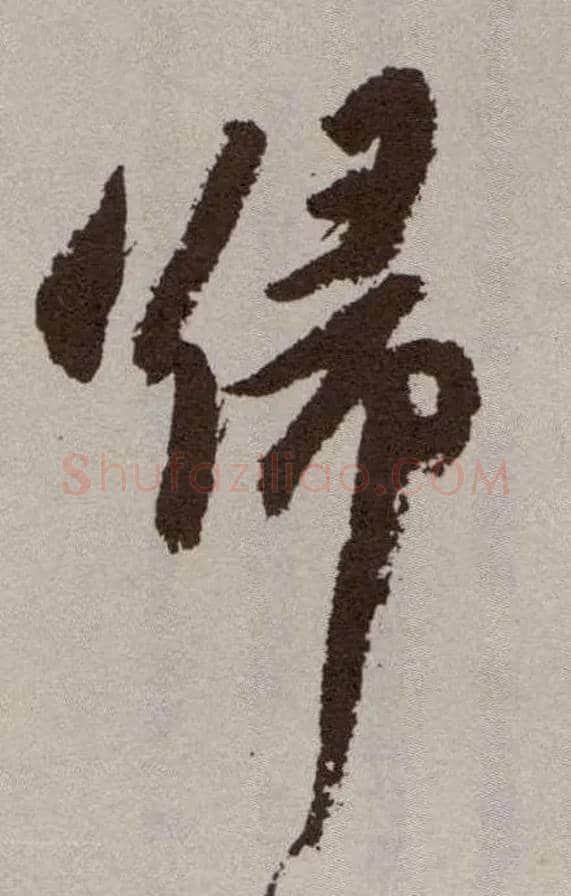 歸
Shufaziliao.COM